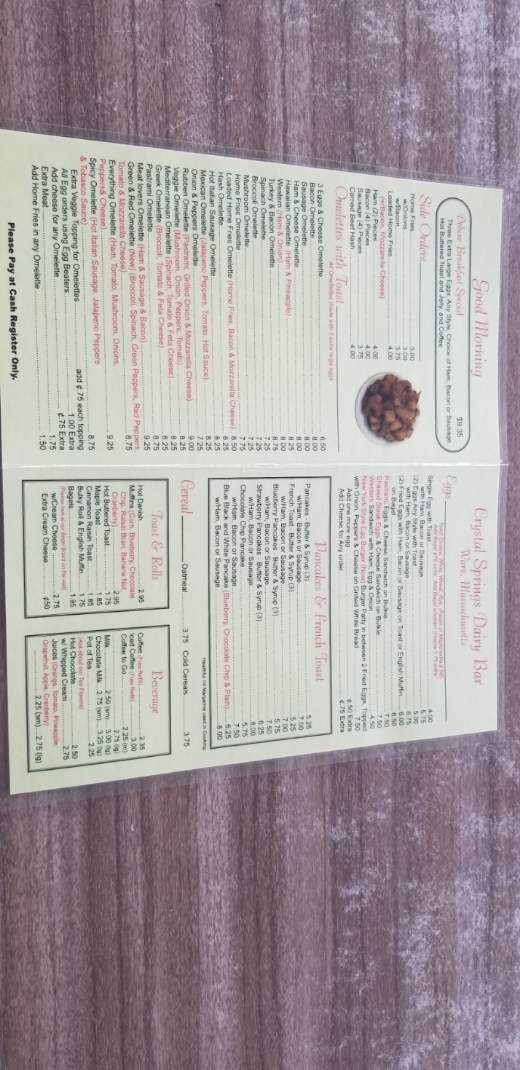 Good Morning
Crystal Springs Dairy Bar
Ware, Massachusetts
$9.35
Two Extra Large Eggs Any Style, Choice of Ham, Bacon or Sausage,
Hot Buttered Toast and Jelly, and Coffee
Side Orders
Home Fries 3.00
Loaded Home Fries 4.00
Ham (2) Pieces 4.00
Bacon (4) Pieces 4.00
Sausage (4) Pieces 3.75
Corned Beef Hash 4.00
Omelettes with Toast
3 Eggs & Cheese Omelette 6.50
Bacon Omelette 8.00
Sausage Omelette 8.00
Ham & Cheese Omelette 8.00
Hawaiian Omelette (Ham & Pineapple) 8.25
Western Omelette (Ham & Onion) 8.00
Turkey & Bacon Omelette 8.75
Spinach Omelette 7.25
Broccoli Omelette 7.25
Mushroom Omelette 7.25
Home Fries Omelette 7.75
Loaded Home Fries Omelette (Home Fries, Bacon & Mozzarella Cheese) 8.50
Hash Omelette 8.25
Hot Italian Sausage Omelette 8.25
Mexican Omelette (Jalapeno Peppers, Tomato, Hot Sauce) 8.25
Onion & Peppers Omelette 7.25
Reuben Omelette (Pastrami, Grilled Onion & Mozzarella Cheese) 9.00
Veggie Omelette (Mushroom, Onion, Peppers, Tomato) 8.25
Mediterranean Omelette (Spinach, Tomato & Feta Cheese) 8.25
Greek Omelette (Broccoli, Tomato & Feta Cheese) 8.25
Pastrami Omelette 8.75
Meat lovers Omelette (Ham & Sausage & Bacon) 9.25
Green & Red Omelette (New) (Broccoli, Spinach, Green Peppers, Red Peppers,
Tomato & Mozzarella Cheese) 8.75
Everything Omelette (Ham, Tomato, Mushroom, Onions,
Peppers & Cheese) 9.25
Spicy Omelette (Hot Italian Sausage, Jalapeno Peppers
& Tobasco Sauce) 8.75
Extra Veggie Topping for Omelettes add ¢.75 each topping
All Egg orders using Egg Beaters 1.00 Extra
Add cheese for any Omelette ¢.75 Extra
Extra Meat 1.75
Add Home Fries in any Omelette 1.50
Please Pay at Cash Register Only.
Eggs
Single Egg with Toast 4.00
with Ham, Bacon or Sausage 6.75
(2) Eggs Any Style with Toast 5.00
with Ham, Bacon or Sausage 6.75
(2) Fried Eggs with Ham, Bacon or Sausage on Toast or English Muffin 6.00
Pastrami, Eggs & Cheese Sandwich on Bulkie
Western Sandwich with Ham, Egg & Onion 4.50
with Onion, Pepper & Cheese on Grilled White Bread 7.50
Add one more egg ¢.50 Extra
Add Cheese for Any order ¢.75 Extra
Pancakes & French Toast
Pancakes - Butter & Syrup (3) 5.25
w/Ham, Bacon or Sausage 7.00
French Toast - Butter & Syrup (3) 5.25
w/Ham, Bacon or Sausage 7.00
Blueberry Pancakes - Butter & Syrup (3) 5.75
w/Ham, Bacon or Sausage 7.50
Strawberry Pancakes - Butter & Syrup (3) 6.25
w/Ham, Bacon or Sausage 8.00
Chocolate Chip Pancake 5.75
w/Ham, Bacon or Sausage 7.50
Blue Black and White Pancake (Blueberry, Chocolate Chip & Plain) 6.25
w/Ham, Bacon or Sausage 8.00
Cereal
Oatmeal 3.75 Cold Cereals 3.75
Toast & Rolls
Hot Danish 2.95
Muffins (Corn, Blueberry, Chocolate
Chip, Raisin Bran, Banana Nut,
Cranberry) 2.95
Hot Buttered Toast 1.75
Maple Toast 1.85
Cinnamon Raisin Toast 1.85
Bulky Roll & English Muffin 1.75
Bagels 1.95
w/Cream Cheese 2.75
Extra Cream Cheese ¢50
Beverage
Coffee (Free Refill) 2.35
Iced Coffee (Free Refill) 3.00
Coffee to Go 2.25 (m)
2.75 (lg)
Milk 2.50 (sm) 3.00 (lg)
Chocolate Milk 2.75 (sm) 3.25 (lg)
Pot of Tea 2.25
Hot Chocolate 2.50
w/ Whipped Cream 2.75
Juices (Orange, Tomato, Pineapple,
Grapefruit, Apple, Cranberry)
2.25 (sm) 2.75 (lg)